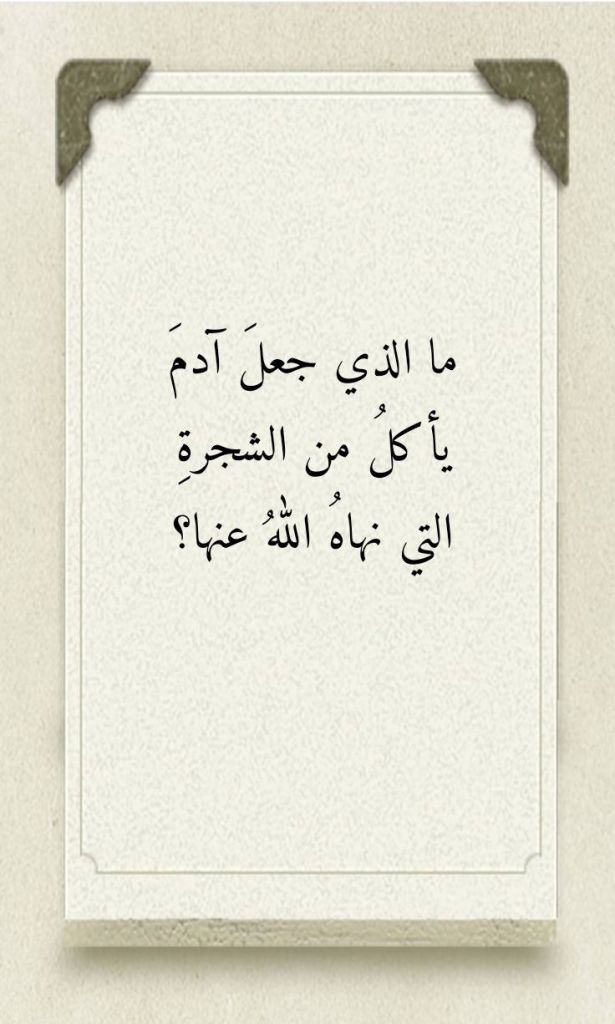 ما الذي جعلَ آدمَ
يأكلُ من الشجرةِ
التي نهاهُ اللهُ عنها؟